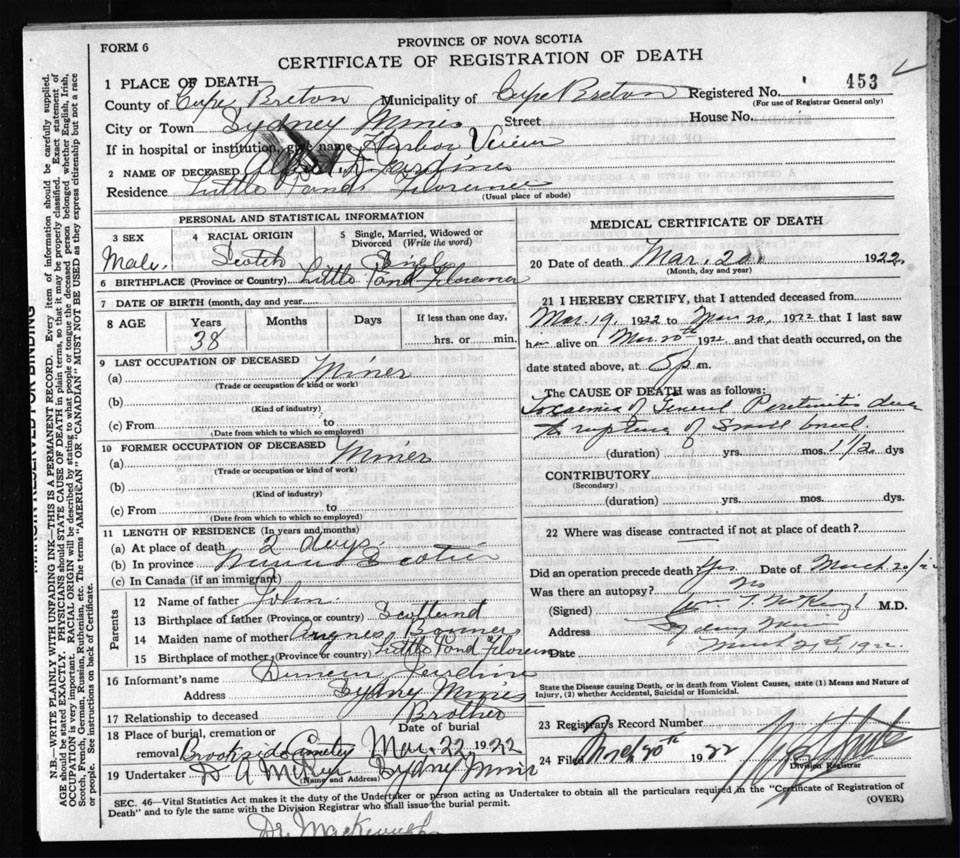 FORM 6
PROVINCE OF NOVA SCOTIA
CERTIFICATE OF REGISTRATION OF DEATH
1 PLACE OF DEATH—
County of Cape Breton Municipality of Cape Breton Registered No. 453
(For use of Registrar General only)
City or Town Sydney Mines Street House No.
If in hospital or institution, give name Harbor View
2 NAME OF DECEASED Jardine
Residence Little Pond Florence
(Usual place of abode)
PERSONAL AND STATISTICAL INFORMATION
3 SEX Male
4 RACIAL ORIGIN Scotch
5 Single, Married, Widowed or Divorced (Write the word) Single
6 BIRTHPLACE (Province or Country) Little Pond Florence
7 DATE OF BIRTH (month, day and year)
8 AGE Years 38 Months Days If less than one day, hrs. or min.
9 LAST OCCUPATION OF DECEASED
(a) Miner
(Trade or occupation or kind or work)
(b)
(Kind of industry)
(c) From to
(Date from which to which so employed)
10 FORMER OCCUPATION OF DECEASED
(a) Miner
(Trade or occupation or kind of work)
(b)
(Kind of industry)
(c) From to
(Date from which to which so employed)
11 LENGTH OF RESIDENCE (In years and months)
(a) At place of death 2 days
(b) In province Nova Scotia
(c) In Canada (if an immigrant)
Parents
12 Name of father John
13 Birthplace of father (Province or country) Scotland
14 Maiden name of mother
15 Birthplace of mother (Province or country) Little Pond Florence
16 Informant's name Duncan Jardine
Address Sydney Mines
17 Relationship to deceased Brother
18 Place of burial, cremation or removal Brookside Cemetery
Date of burial Mar. 22, 1922
19 Undertaker Sydney Mines
(Name and Address)
MEDICAL CERTIFICATE OF DEATH
20 Date of death Mar. 20, 1922
(Month, day and year)
21 I HEREBY CERTIFY, that I attended deceased from
Mar. 19, 1922 to Mar 20, 1922 that I last saw
him alive on Mar 20th 1922 and that death occurred, on the
date stated above, at 5 p m.
The CAUSE OF DEATH was as follows:
Toxaemia of General Peritonitis due
to rupture of small bowel
(duration) yrs. mos. 1 1/2 dys
CONTRIBUTORY
(Secondary)
(duration) yrs. mos. dys.
22 Where was disease contracted if not at place of death?
Did an operation precede death? Yes Date of March 20/22
Was there an autopsy? No
(Signed) M.D.
Address Sydney Mines
Date March 21st, 1922
State the Disease causing Death, or in death from Violent Causes, state (1) Means and Nature of Injury, (2) whether Accidental, Suicidal or Homicidal.
23 Registrar's Record Number
24 Filed March 20th 1922
Division Registrar
SEC. 46—Vital Statistics Act makes it the duty of the Undertaker or person acting as Undertaker to obtain all the particulars required in the "Certificate of Registration of
Death" and to fyle the same with the Division Registrar who shall issue the burial permit. (OVER)
N.B.—WRITE PLAINLY WITH UNFADING INK—THIS IS A PERMANENT RECORD. Every item of information should be carefully supplied.
AGE should be stated EXACTLY. PHYSICIANS should STATE CAUSE OF DEATH in plain terms, so that it may be properly classified. Exact statement of
OCCUPATION is very important. RACIAL ORIGIN will be described by stating to what people or tongue the deceased person belonged whether English, Irish,
Scotch, French, German, Russian, Ruthenian, etc. The terms "AMERICAN" OR "CANADIAN" MUST NOT BE USED as they express citizenship but not a race
or people. See instructions on back of Certificate.
MARGIN RESERVED FOR BINDING